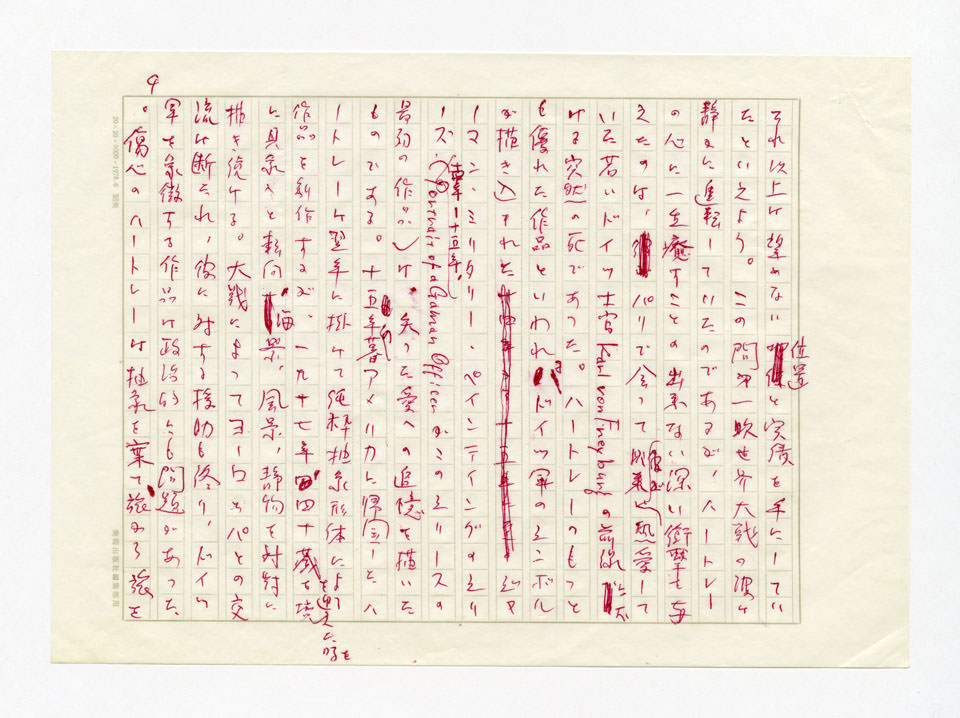 それ以上は望めない位置と実績を手にしてい
たといえよう。この間第一次世界大戦の波は
静かに進転していたのであるが、ハートレー
の心に一生癒すことの出来ない深い衝撃を与
えたのは、パリで会って熱愛して
いた若いドイツ士官 Karl von Freyburg の前線に
ける突然の死であった。ハートレーのもっと
も優れた作品といわれ ドイツ軍のシンボル
が描き込まれた
ーマン・ミリタリー・ペインティングのシリ
ーズ (Portrait of a German Officer がこのシリーズの
最初の作品)は、失った愛への追憶を描いた
ものである。十五年暮アメリカに帰国した ハ
ートレーは翌年に掛けて純粋抽象形体による
作品を制作するが、一九十七年四十歳を境
に具象へと転向 海景、風景、静物を対象に
描き続ける。大戦によってヨーロッパとの交
流は断たれ、彼に対する援助も終り、ドイツ
軍を象徴する作品は政治的にも問題があった
。傷心のハートレーは抽象を棄て旅から旅を
4
20×20